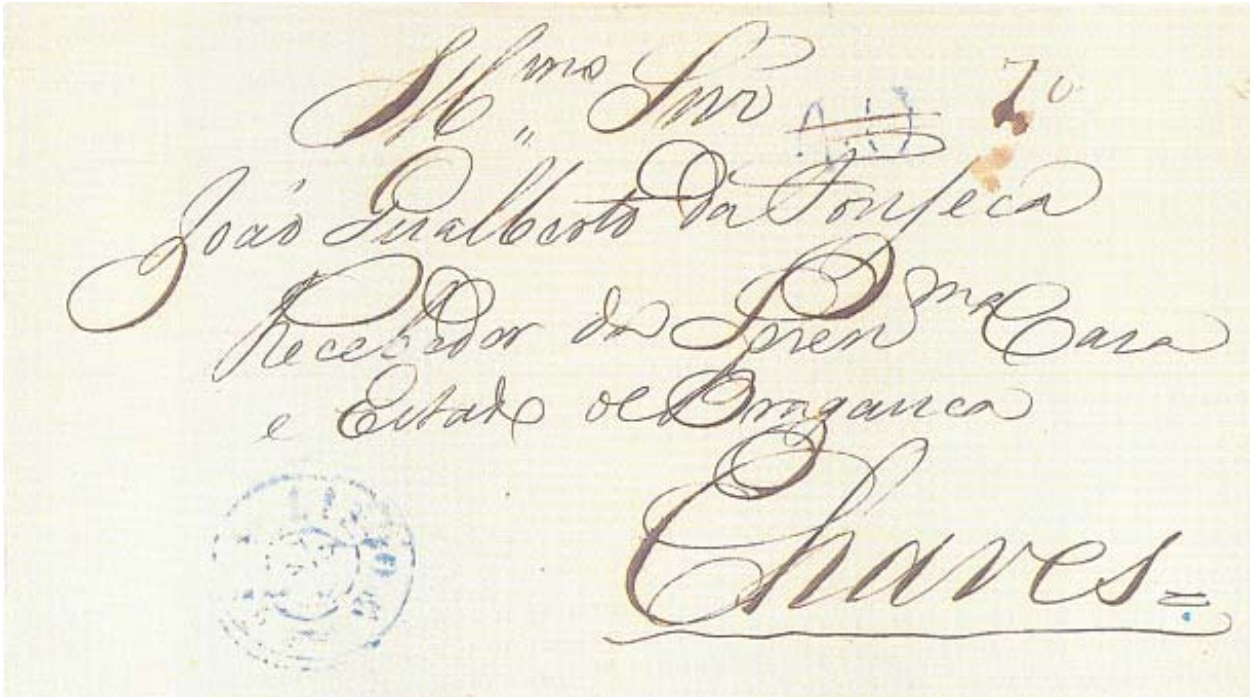 Ill,,mo Snr
João Gualberto da Fonseca
Recebedor da Seren ma Casa
e Estado de Bragança
Chaves =